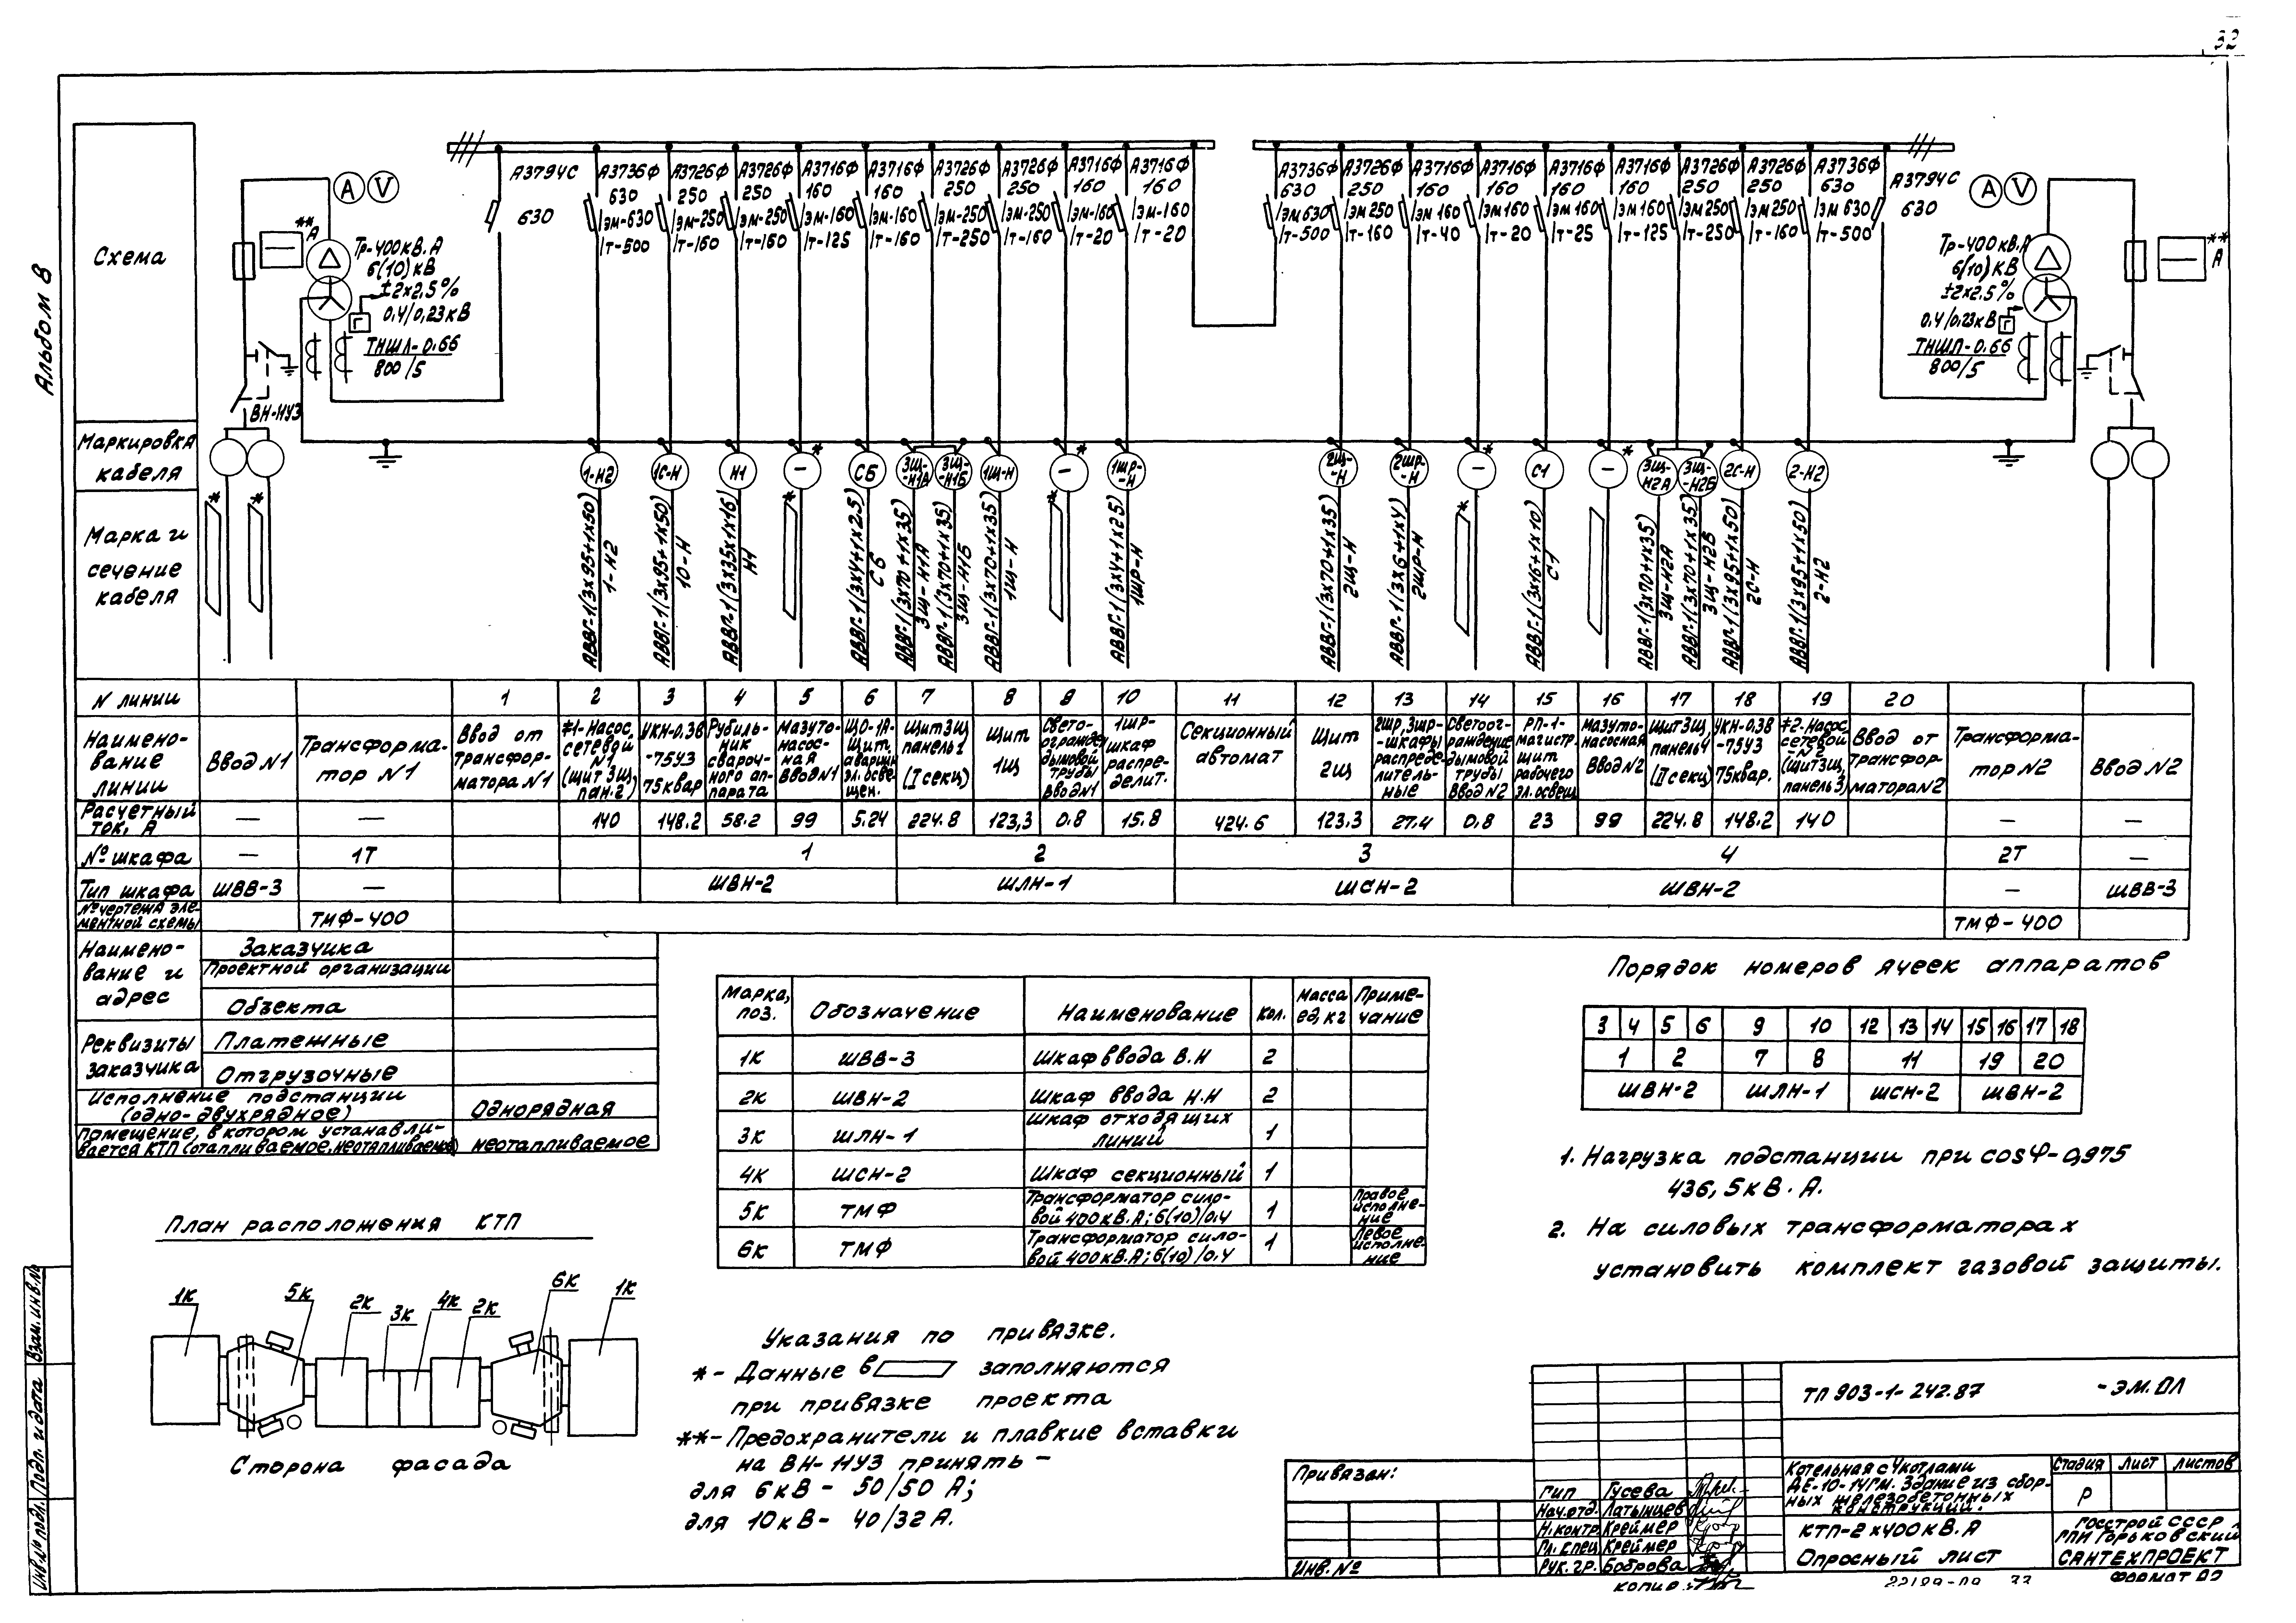 32
Альбом 8
Схема
ВН-НУЗ
** А
А V
Тр-400кВ.А
6(10)кВ
±2х2,5%
0,4/0,23кВ
ТНШЛ-0.66
800/5
А3794С
630
А3736Ф
630
эм-630
т-500
А3726Ф
250
эм-250
т-160
А3726Ф
250
эм-250
т-160
А3716Ф
160
эм-160
т-125
А3716Ф
160
эм-160
т-160
А3726Ф
250
эм-250
т-250
А3726Ф
250
эм-250
т-160
А3716Ф
160
эм-160
т-20
А3716Ф
160
эм-160
т-20
А3736Ф
630
эм630
т-500
А3726Ф
250
эм250
т-160
А3716Ф
160
эм160
т-40
А3716Ф
160
эм160
т-20
А3716Ф
160
эм160
т-25
А3716Ф
160
эм160
т-125
А3726Ф
250
эм250
т-250
А3726Ф
250
эм250
т-160
А3736Ф
630
эм630
т-500
А3794С
630
А V
Тр-400кВ.А
6(10)кВ
±2х2,5%
0,4/0,23кВ
ТНШЛ-0.66
800/5
** А
Маркировка кабеля
1-Н2 1С-Н Н1 - * СБ 3Щ-Н1А 3Щ-Н1Б 1Щ-Н - * 1ШР-Н 2Щ-Н 2ШР-Н - * С1 - * 3Щ-Н2А 3Щ-Н2Б 2С-Н 2-Н2
Марка и сечение кабеля
АВВГ-1(3х95+1х50) 1-Н2
АВВГ-1(3х95+1х50) 10-Н
АВВГ-1(3х35х1х16) Н1
АВВГ-1(3х4+1х2.5) СБ
АВВГ-1(3х70+1х35) 3Щ-Н1А
АВВГ-1(3х70+1х35) 3Щ-Н1Б
АВВГ-1(3х70+1х35) 1Щ-Н
АВВГ-1(3х4+1х2.5) 1ШР-Н
АВВГ-1(3х70+1х35) 2Щ-Н
АВВГ-1(3х6+1х4) 2ШР-Н
АВВГ-1(3х16+1х10) С1
АВВГ-1(3х70+1х35) 3Щ-Н2А
АВВГ-1(3х70+1х35) 3Щ-Н2Б
АВВГ-1(3х95+1х50) 2С-Н
АВВГ-1(3х95+1х50) 2-Н2
N линии 1 2 3 4 5 6 7 8 9 10 11 12 13 14 15 16 17 18 19 20
Наименование линии
Ввод N1
Трансформатор N1
Ввод от трансформатора N1
#1-Насос сетевой N1 (щит 3щ пан.2)
УКН-0,38 -75УЗ 75квар
Рубильник сварочного аппарата
Мазутонасосная Ввод N1
ЩО-1А-Щит. аварийн эл. освещен.
Щит 3щ панель 1 (I секц)
Щит 1щ
Светоогражден дымовой трубы Ввод N1
1шр-шкаф распределит.
Секционный автомат
Щит 2щ
2шр, 3шр-шкафы распределительные
Светоограждение дымовой трубы Ввод N2
РП-1-магистр. щит рабочего эл. освещ
Мазутонасосная Ввод N2
Щит 3щ панель 4 (II секц)
УКН-0,38 -75УЗ 75квар.
#2. Насос сетевой -N2 (щит 3щ, панель 3)
Ввод от трансформатора N2
Трансформатор N2
Ввод N2
Расчетный ток, А — — 140 148.2 58.2 99 5.24 224.8 123,3 0.8 15.8 424.6 123.3 27.4 0.8 23 99 224.8 148.2 140 — —
№ шкафа — 1Т 1 2 3 4 2Т —
Тип шкафа ШВВ-3 — ШВН-2 ШЛН-1 ШСН-2 ШВН-2 — ШВВ-3
№ чертежа элементной схемы ТМФ-400 ТМФ-400
Наименование и адрес
Заказчика
Проектной организации
Объекта
Реквизиты заказчика
Платежные
Отгрузочные
Исполнение подстанции (одно-двухрядное) Однорядная
Помещение, в котором устанавливается КТП (отапливаемое, неотапливаемое) неотапливаемое
Марка, поз. Обозначение Наименование Кол. Масса ед, кг Примечание
1К ШВВ-3 Шкаф ввода В.Н 2
2К ШВН-2 Шкаф ввода Н.Н 2
3К ШЛН-1 Шкаф отходящих линий 1
4К ШСН-2 Шкаф секционный 1
5К ТМФ Трансформатор силовой 400кВ.А; 6(10)/0,4 1 Правое исполнение
6К ТМФ Трансформатор силовой 400кВ.А; 6(10)/0,4 1 Левое исполнение
Порядок номеров ячеек аппаратов
3 4 5 6 9 10 12 13 14 15 16 17 18
1 2 7 8 11 19 20
ШВН-2 ШЛН-1 ШСН-2 ШВН-2
1. Нагрузка подстанции при cosφ-0,975
436,5кВ.А.
2. На силовых трансформаторах
установить комплект газовой защиты.
План расположения КТП
1К 5К 2К 3К 4К 2К 6К 1К
Сторона фасада
Указания по привязке.
*- Данные в заполняются
при привязке проекта
**- Предохранители и плавкие вставки
на ВН-НУЗ принять -
для 6кВ - 50/50 А;
для 10кВ- 40/32 А.
Привязан:
Инв. №
ТП 903-1-242.87 -ЭМ.ОЛ
Гип Гусева
Нач.отд. Латынцев
Н.контр. Креймер
Гл. спец Креймер
Рук. гр. Боброва
Котельная с 4 котлами
ДЕ-10-14ГМ. Здание из сборных железобетонных
конструкций.
Стадия Лист Листов
Р
КТП-2х400кВ.А
Опросный лист
Госстрой СССР
ГПИ Горьковский
САНТЕХПРОЕКТ
копир.
22189-09 33
Формат А2
Инв.№ подл. Подп. и дата Взам. инв.№